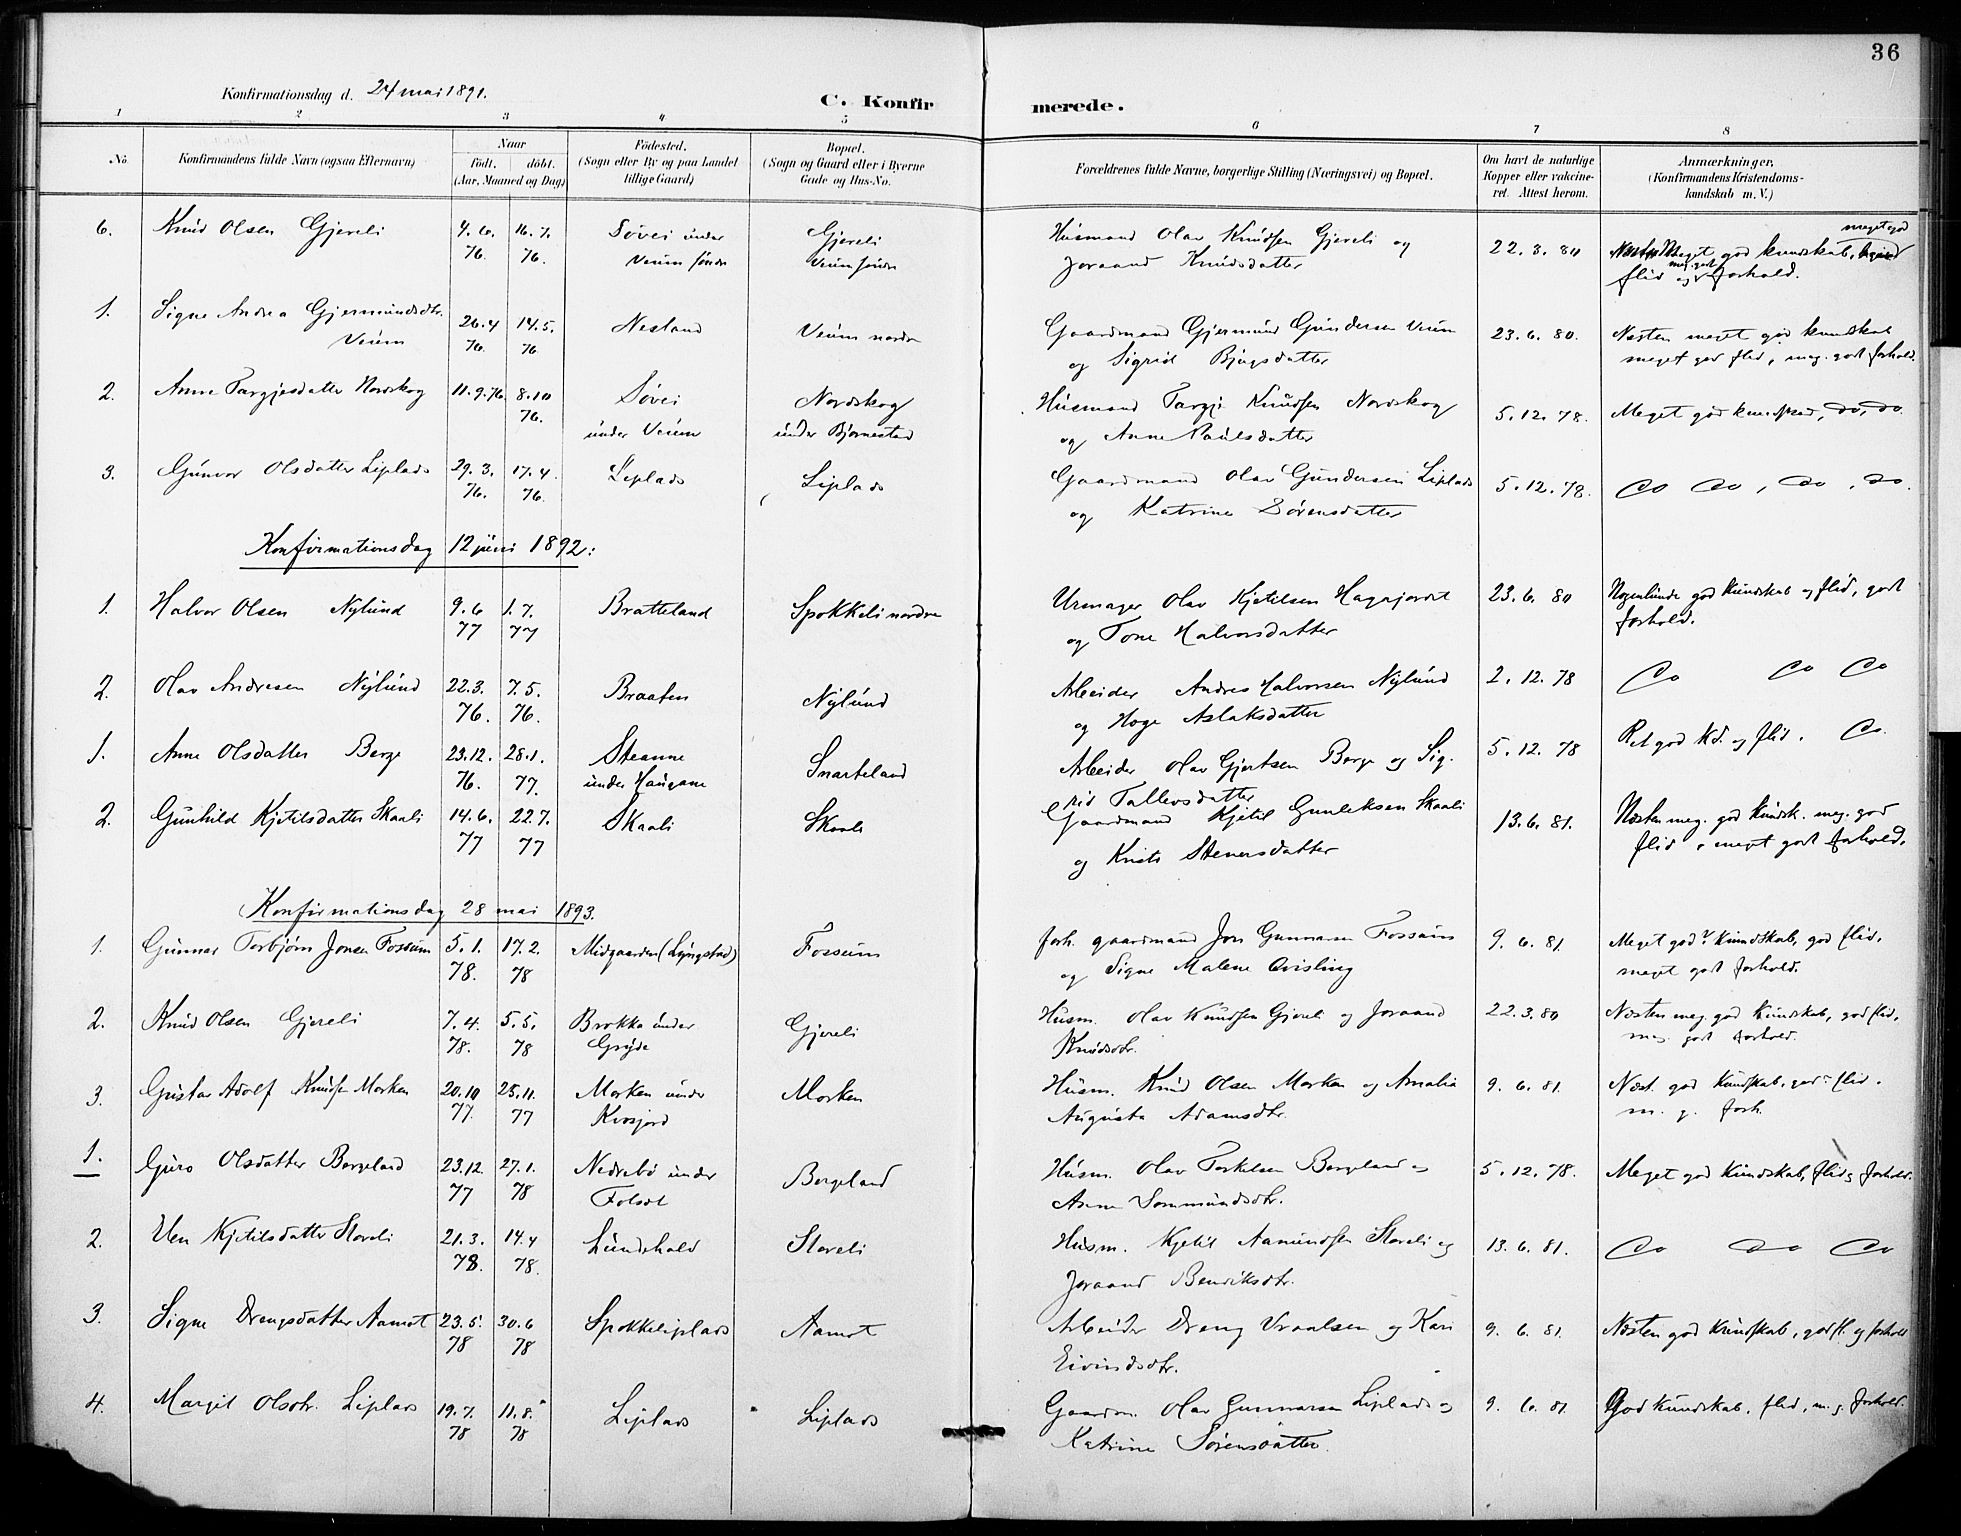 36
Konfirmationsdag d. 24 mai 1891.
C. Konfirmerede.
1 2 3 4 5 6 7 8
No. Konfirmandens fulde Navn (ogsaa Efternavn) Naar födt. döbt. (Aar, Maaned og Dag) Födested. (Sogn eller By og paa Landet tillige Gaard) Bopæl. (Sogn og Gaard eller i Byerne Gade og Hus-No. Forældrenes fulde Navne, borgerlige Stilling (Næringsvei) og Bopæl. Om havt de naturlige Kopper eller vakcineret. Attest herom. Anmærkninger, (Konfirmandens Kristendomskundskab m. V.)
6. Knud Olsen Gjereli 4.6. 76. 16.7. 76. Søvei under Veum søndre Gjereli Veum søndre Husmand Olav Knudsen Gjereli og Joraand Knudsdatter 22.3.80 Meget god kundskab, meget god flid og meg. godt forhold.
1. Signe Andrea Gjermundsdtr. Veum 26.4 76. 14.5. 76 Nesland Veum nordre Gaardmand Gjermund Gundersen Veum og Sigrid Bjugsdatter 23.6.80. Næsten meget god kundskab meget god flid, meg. godt forhold.
2. Anne Targjesdatter Nordskog 11.9.76 8.10 76. Søvei under Veum Nordskog under Bjørnestad Husmand Targje Knudsen Nordskog og Anne Paulsdatter 5.12.78. Meget god kundskab, do, do.
3. Gunvor Olsdatter Liplads 29.3. 76. 17.4. 76. Liplads Liplads Gaardmand Olav Gundersen Liplads og Katrine Sørensdatter 5.12.78. do do, do, do.
Konfirmationsdag 12 juni 1892:
1. Halvor Olsen Nylund 9.6 77 1.7. 77 Bratteland Spokkeli nordre Urmager Olav Kjetilsen Hagajordet og Tone Halvorsdatter 23.6.80 Nogenlunde god kundskab og flid, godt forhold.
2. Olav Andresen Nylund 22.3. 76. 7.5. 76. Braaten Nylund Arbeider Andres Halvorsen Nylund og Hoge Aslaksdatter 2.12.78 do do do
1. Anne Olsdatter Berge 23.12. 76. 28.1. 77. Steanne under Haugane Snarteland Arbeider Olav Gjertsen Berge og Sigrid Tallevsdatter 5.12.78 Ret god kd. og flid. do.
2. Gunhild Kjetilsdatter Skaali 14.6. 77 22.7. 77 Skaali Skaali Gaardmand Kjetil Gunleksen Skaali og Kristi Stenersdatter 13.6.81. Næsten meg. god kundsk. meg. god flid, meget godt forhold.
Konfirmationsdag 28 mai 1893.
1. Gunnar Torbjørn Jonsen Fossum 5.1. 78. 17.2. 78 Midgaarden (Lyngstad) Fossum forh. gaardmand Jon Gunnarsen Fossum og Signe Malene Qvisling 9.6.81. Meget god kundskab, god flid, meget godt forhold.
2. Knud Olsen Gjereli 7.4. 78. 5.5. 78 Brokka under Gryde Gjereli Husm. Olav Knudsen Gjereli og Joraand Knudsdtr. 22.3.80 Næsten meg. god kundskab, god flid, meg. godt forhold.
3. Gustav Adolf Knudsen Morken 20.10 77. 25.11. 77 Morken under Kvosjord Morken Husm. Knud Olsen Morken og Amalia Augusta Adamsdtr. 9.6.81. Næst. god kundskab, god flid. m. g. forh.
1. Guro Olsdatter Bergeland 23.12. 77 27.1. 78 Nedrebø under Folsæt Bergeland Husm. Olav Torkelsen Bergeland og Anne Sommundsdtr. 5.12.78. Meget god kundskab, flid og forhold.
2. Kjetilsdatter Storeli 21.3. 78. 14.4 78. Lundehald Storeli Husm. Kjetil Aamundsen Storeli og Joraand Bendiksdtr. 13.6.81. do do do
3. Signe Drengsdatter Aamot 23.5. 78 30.6 78 Spokkeliplads Aamot Arbeider Dreng Vraalsen og Kari Eivindsdtr. 9.6.81. Næsten god kundskab, god fl. og forhold
4. Margit Olsdtr. Liplads 19.7. 78 11.8. 78 Liplads Liplads Gaardm. Olav Gunnarsen Liplads og Katrine Sørensdatter. 9.6.81 God kundskab, flid, m. g. forhold.